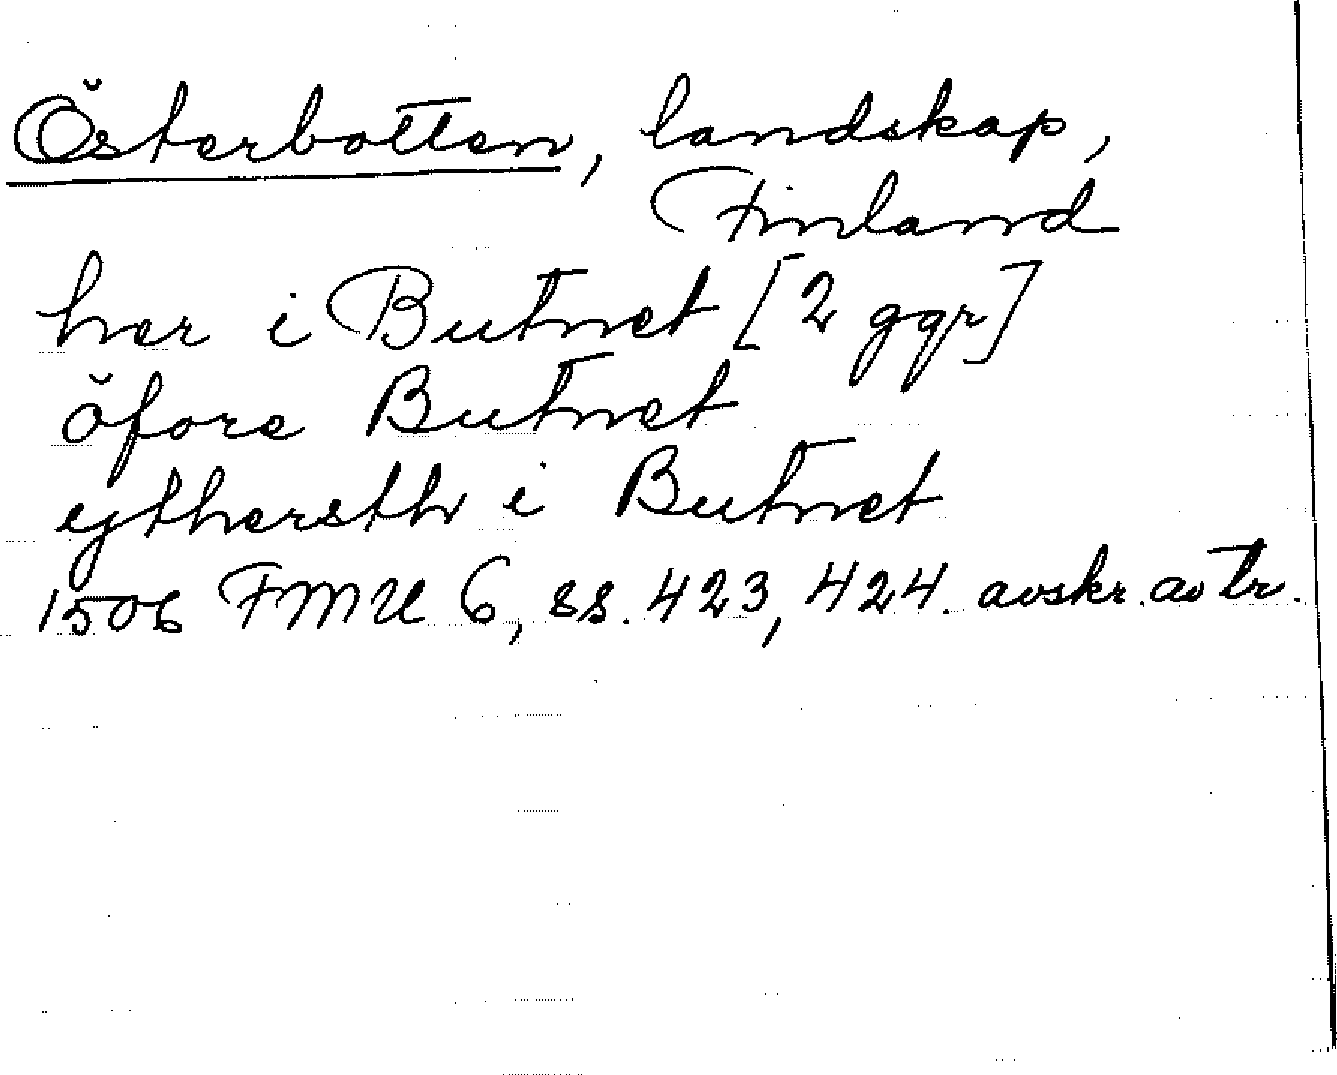 Österbotten, landskap,
Finland
her i Butnet [2 ggr]
öfore Butnet
ytthersth i Butnet
1506 FMU 6, ss. 423, 424. avskr. av tr.